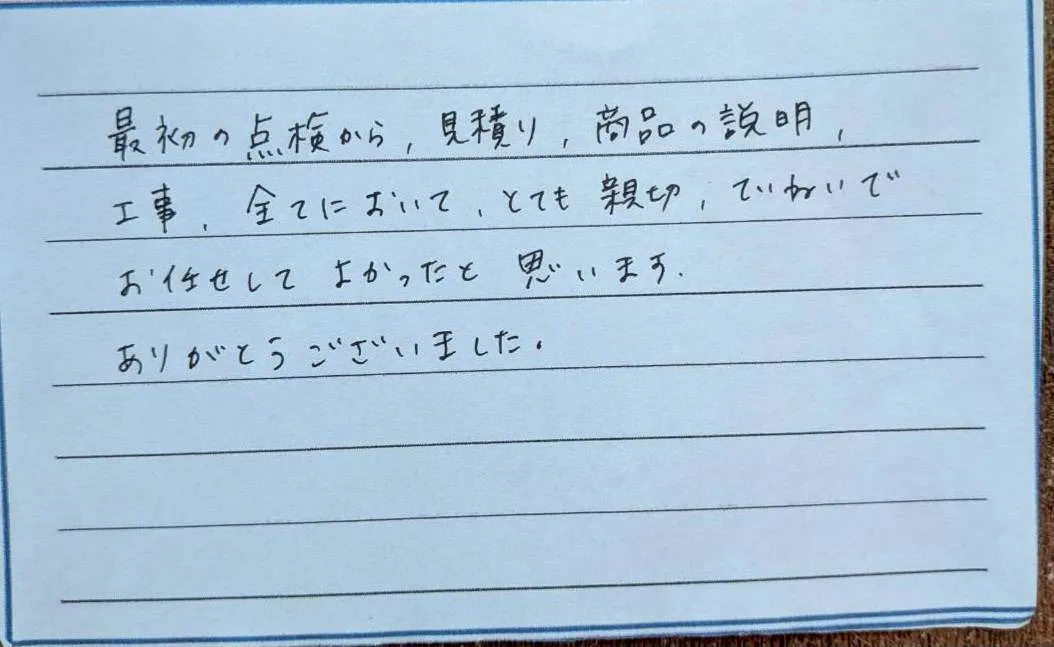 最初の点検から,見積り,商品の説明,
工事,全てにおいて,とても親切,ていねいで
お任せしてよかったと思います.
ありがとうございました.